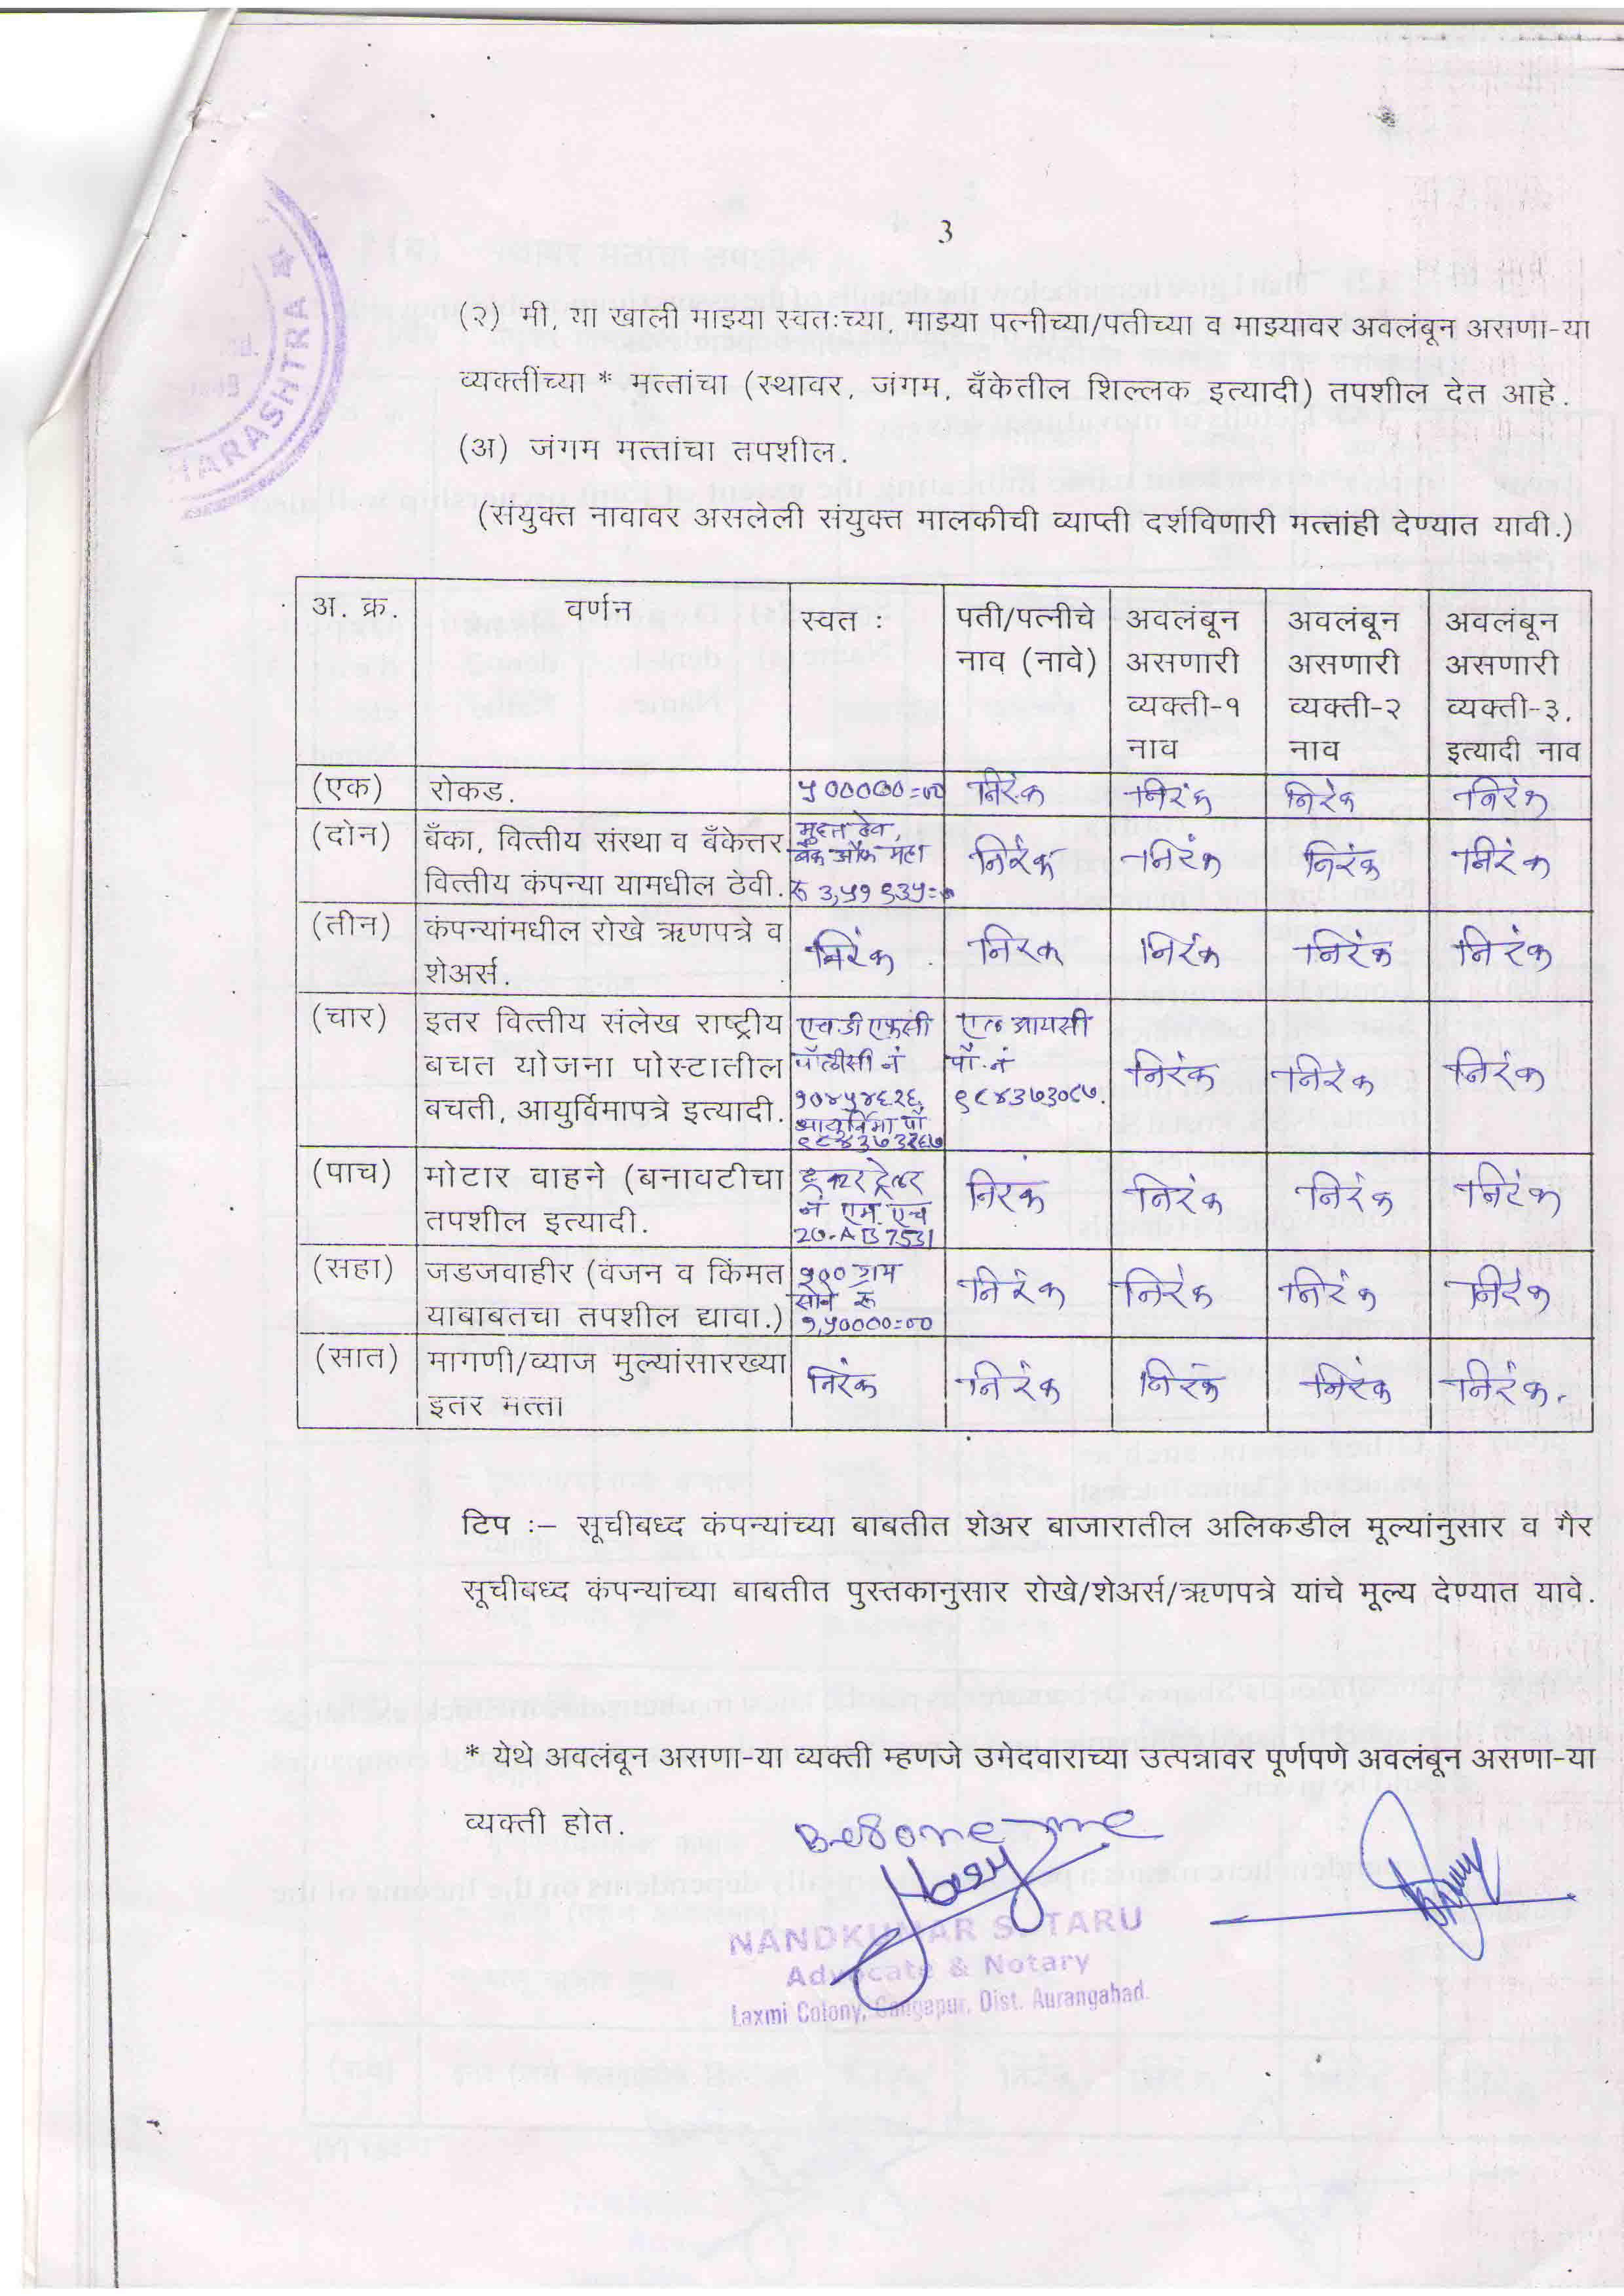 3
HARASHTRA
(२) मी, या खाली माझ्या स्वतःच्या, माझ्या पत्नीच्या/पतीच्या व माझ्यावर अवलंबून असणा-या
व्यक्तींच्या * मत्तांचा (स्थावर, जंगम, बँकेतील शिल्लक इत्यादी) तपशील देत आहे.
(अ) जंगम मत्तांचा तपशील.
(संयुक्त नावावर असलेली संयुक्त मालकीची व्याप्ती दर्शविणारी मत्तांही देण्यात यावी.)
अ. क्र. वर्णन स्वत : पती/पत्नीचे नाव (नावे) अवलंबून असणारी व्यक्ती-१ नाव अवलंबून असणारी व्यक्ती-२ नाव अवलंबून असणारी व्यक्ती-३, इत्यादी नाव
(एक) रोकड. ५०००००=०० निरंक निरंक निरंक निरंक
(दोन) बँका, वित्तीय संस्था व बँकेत्तर वित्तीय कंपन्या यामधील ठेवी. मुदत ठेव, बँक ऑफ महा रू ३,५१९३५=०० निरंक निरंक निरंक निरंक
(तीन) कंपन्यांमधील रोखे ऋणपत्रे व शेअर्स. निरंक निरंक निरंक निरंक निरंक
(चार) इतर वित्तीय संलेख राष्ट्रीय बचत योजना पोस्टातील बचती, आयुर्विमापत्रे इत्यादी. एचडीएफसी पॉलीसी नं १०४५४६२६ आयुर्विमा पॉ एल आयसी पॉ. नं ९८४३७३०८७. निरंक निरंक निरंक
(पाच) मोटार वाहने (बनावटीचा तपशील इत्यादी. ट्रॅक्टर ट्रेलर नं एम. एच 20-AB 7531 निरंक निरंक निरंक निरंक
(सहा) जडजवाहीर (वजन व किंमत याबाबतचा तपशील द्यावा.) १०० ग्रॅम सोने रू १,५००००=०० निरंक निरंक निरंक निरंक
(सात) मागणी/व्याज मुल्यांसारख्या इतर मत्ता निरंक निरंक निरंक निरंक निरंक.
टिप :– सूचीबध्द कंपन्यांच्या बाबतीत शेअर बाजारातील अलिकडील मूल्यांनुसार व गैर
सूचीबध्द कंपन्यांच्या बाबतीत पुस्तकानुसार रोखे/शेअर्स/ऋणपत्रे यांचे मूल्य देण्यात यावे.
* येथे अवलंबून असणा-या व्यक्ती म्हणजे उमेदवाराच्या उत्पन्नावर पूर्णपणे अवलंबून असणा-या
व्यक्ती होत.
Before me
NANDKUMAR SUTARU
Advocate & Notary
Laxmi Colony, Gangapur, Dist. Aurangabad.